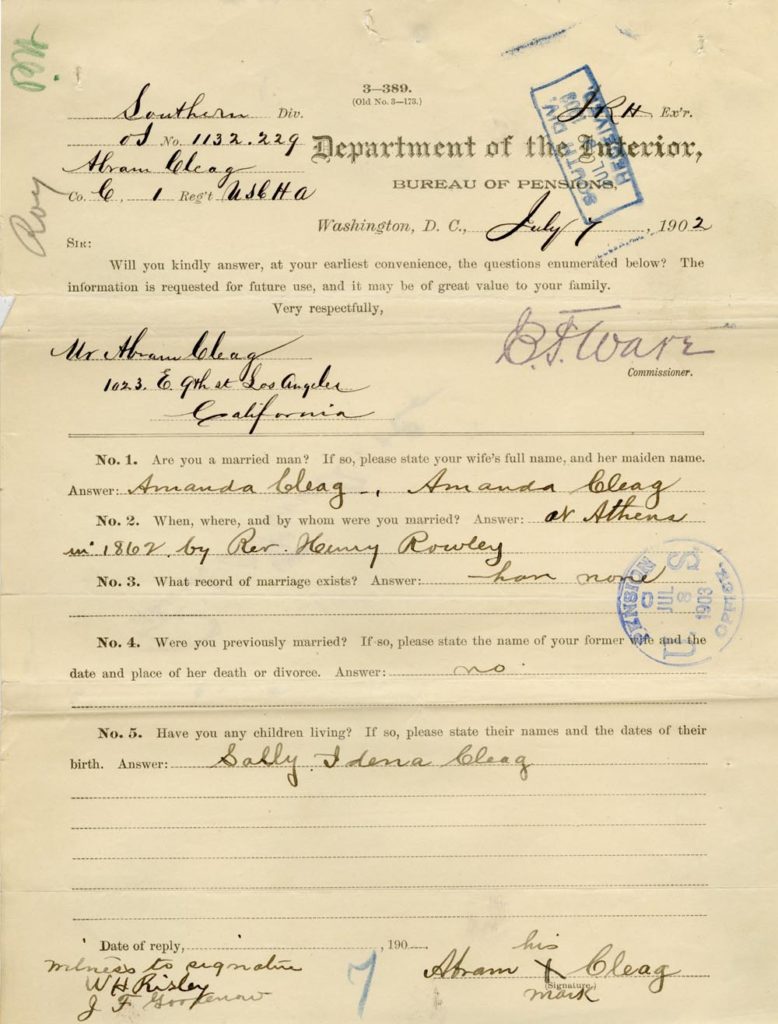 3—389.
(Old No. 3—173.)
Southern Div.
No. 1132.229
Abram Cleag
Co. C, 1 Reg't USCHA
JRH Ex'r.
SOUTH DIV.
RECEIVED
Department of the Interior,
BUREAU OF PENSIONS,
Washington, D. C., July 7, 1902
Roy
SIR:
Will you kindly answer, at your earliest convenience, the questions enumerated below? The
information is requested for future use, and it may be of great value to your family.
Very respectfully,
Commissioner.
Mr Abram Cleag
1023. E. 9th st Los Angeles
California
No. 1. Are you a married man? If so, please state your wife's full name, and her maiden name.
Answer: Amanda Cleag -, Amanda Cleag
No. 2. When, where, and by whom were you married? Answer: at Athens
in 1862. by Rev. Henry Rowley
No. 3. What record of marriage exists? Answer: have none
U.S. PENSION OFFICE
JUL 8 1903
No. 4. Were you previously married? If so, please state the name of your former wife and the
date and place of her death or divorce. Answer: no
No. 5. Have you any children living? If so, please state their names and the dates of their
birth. Answer: Sally Idena Cleag
Date of reply, , 190
witness to signature
W H Risley
J F
7
his
Abram X Cleag
(Signature.)
mark